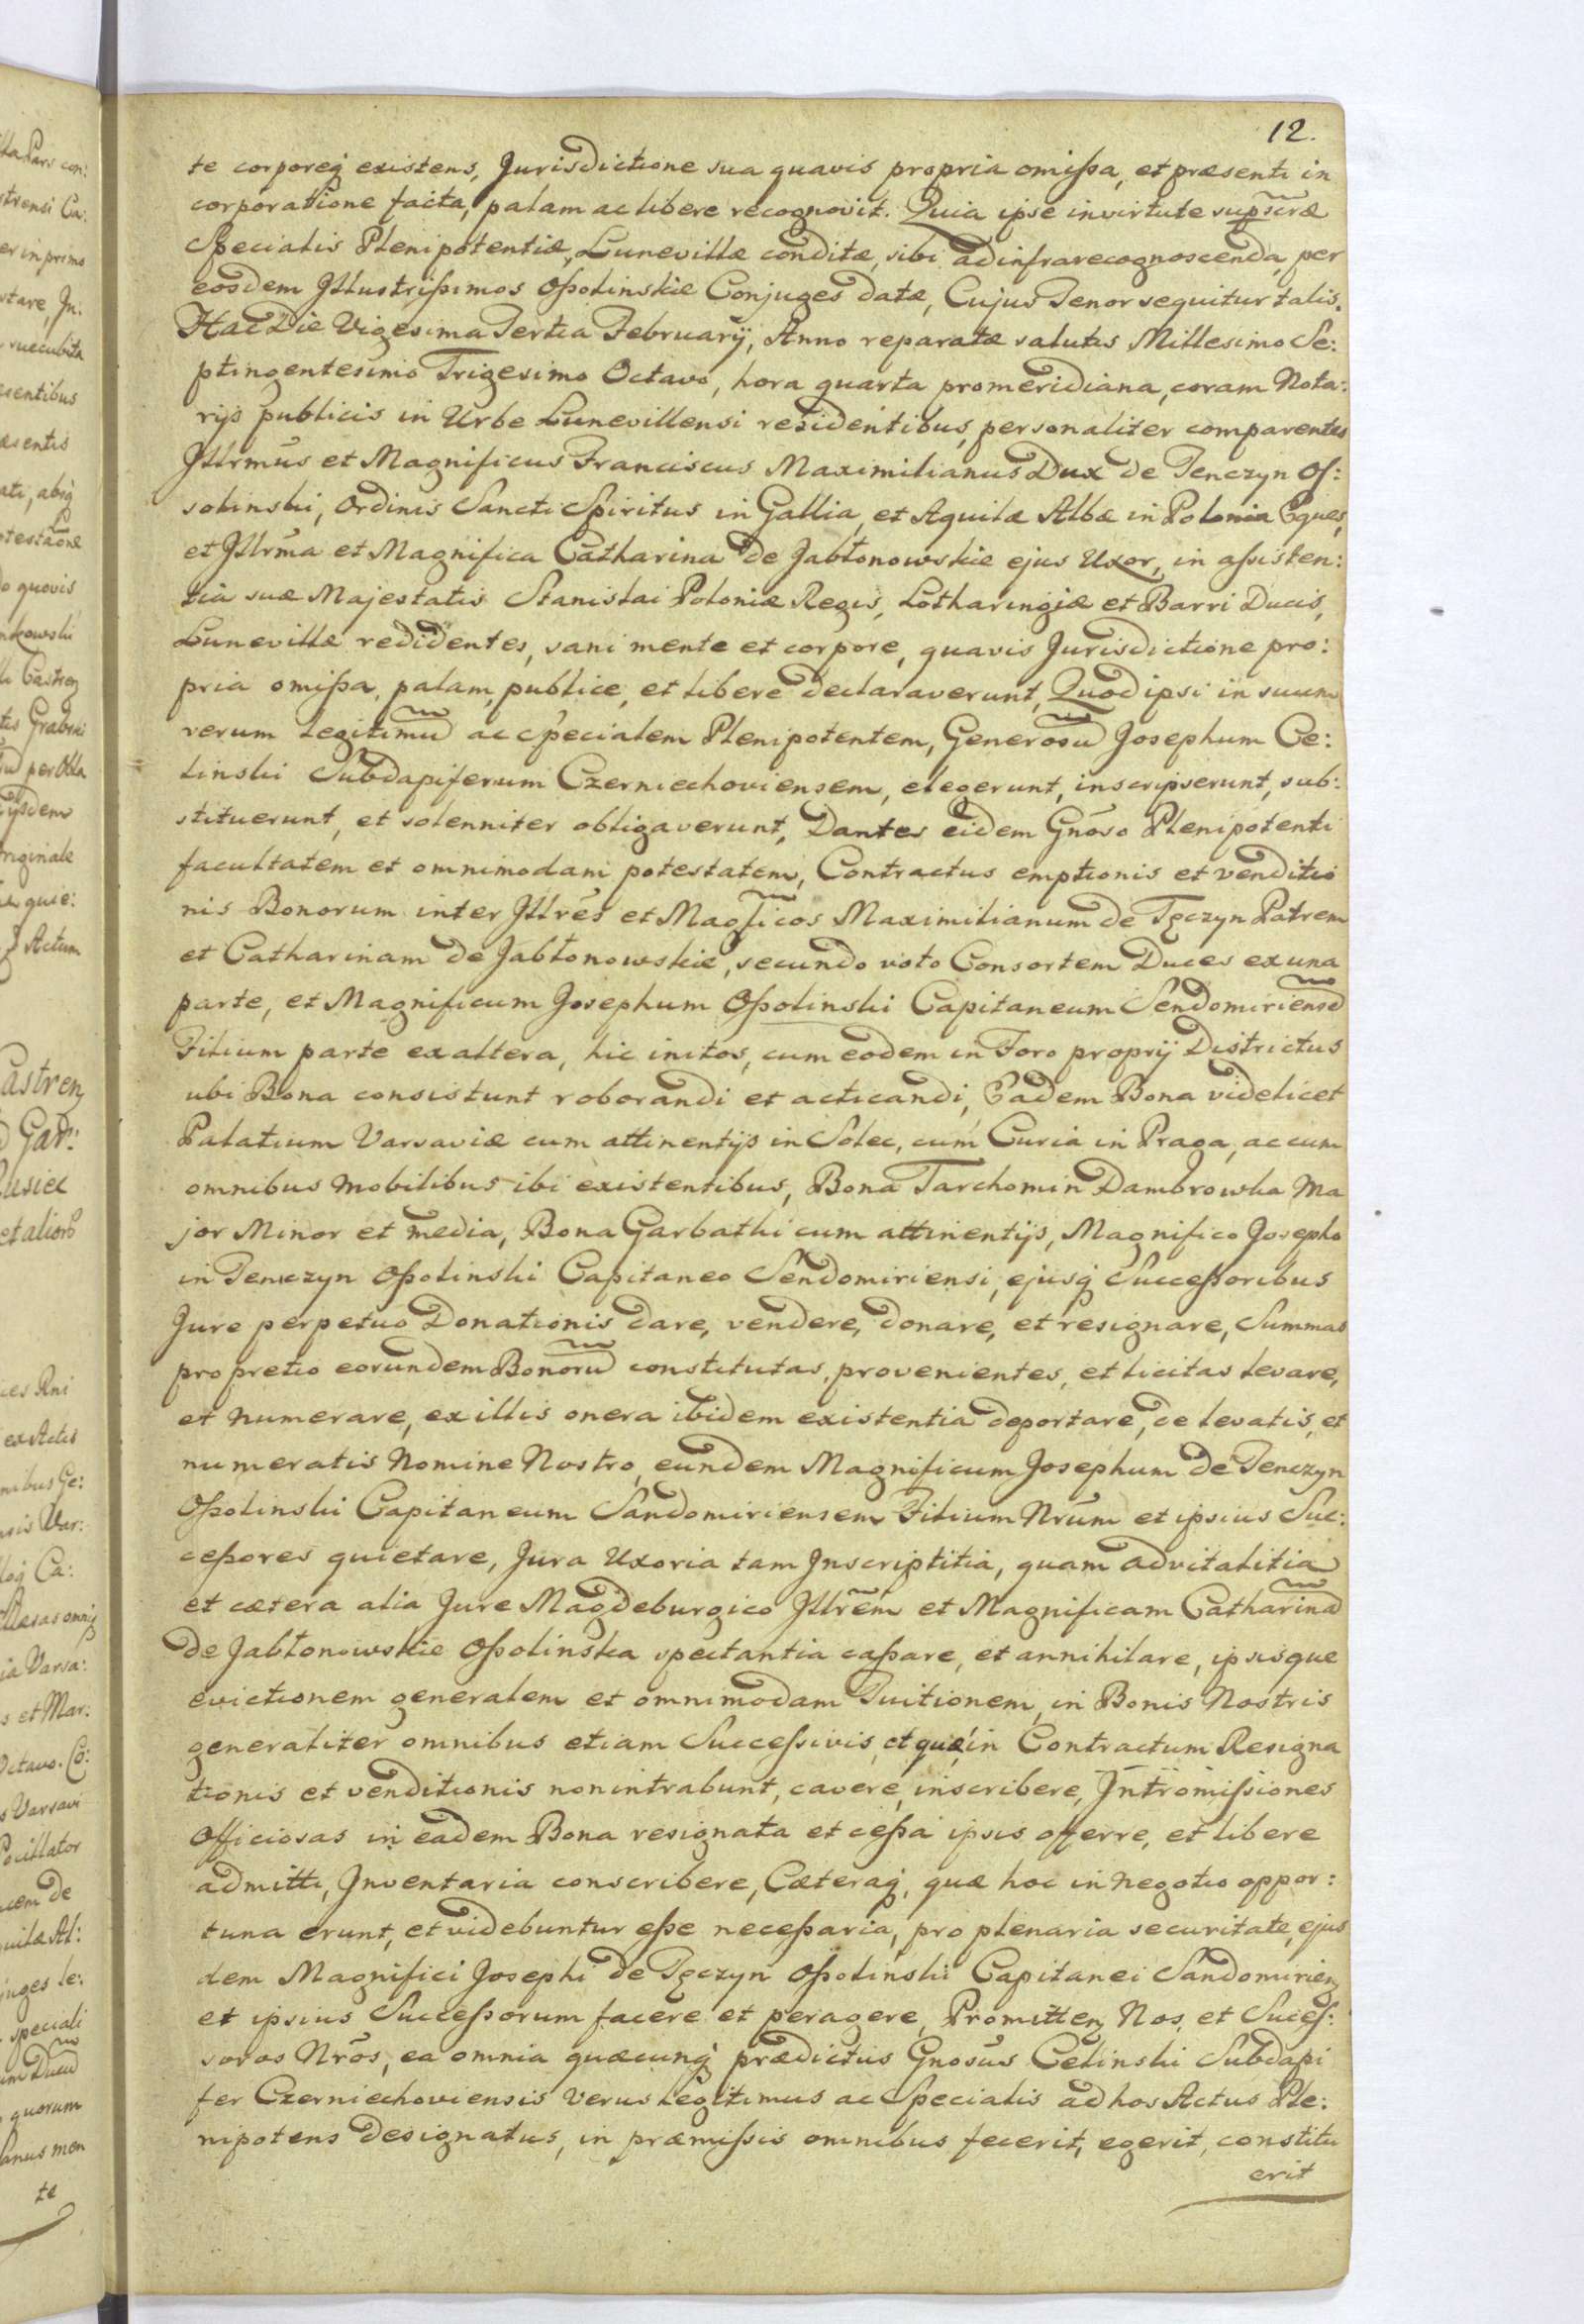 12.
te corporeq̃ existens, Jurisdictione sua quavis propria omissa, et præsenti in
corporatione facta, palam ac libere recognovit. Quia ipse in virtute supscræ
Specialis Plenipotentiæ, Lunevillæ conditæ, sibi ad infrarecognoscenda, per
eosdem Jllustrissimos Ossolinskie Conjuges datæ, Cujus Tenor sequitur talis.
Hac Die Vigesima Tertia February, Anno reparatæ salutis Millesimo Se:
ptingentesimo Trigesimo Octavo, hora quarta promeridiana, coram Nota:
rijs publicis in Urbe Lunevillensi residentibus, personaliter comparentes
Jllrmũs et Magnificus Franciscus Maximilianus Dux de Tenczyn Os:
solinski, Ordinis Sancti Spiritus in Gallia, et Aquilæ Albæ in Polonia Eques,
et Jllrm̃a et Magnifica Catharina de Jabłonowskie ejus Uxor, in assisten:
tia suæ Majestatis Stanislai Poloniæ Regis, Lotharingiæ et Barri Ducis,
Lunevillæ redidentes, sani mente et corpore, quavis Jurisdictione pro:
pria omissa, palam, publice, et libere declaraverunt, Quod ipsi in suum
verum Legitimũ ac specialem Plenipotentem, Generosũ Josephum Ce:
linski Subdapiferum Czerniechoviensem, elegerunt, inscripserunt, sub:
stituerunt, et solenniter obligaverunt, Dantes eidem Gnõso Plenipotenti
facultatem et omnimodam potestatem, Contractus emptionis et venditio
nis Bonorum inter Jllrẽs et Magficos Maximilianum de Tęczyn Patrem
et Catharinam de Jabłonowskie, secundo voto Consortem Duces ex una
parte, et Magnificum Josephum Ossolinski Capitaneum Sendomiriensẽ
Filium parte ex altera, hic initos, cum eodem in Foro proprij Districtus
ubi Bona consistunt roborandi et acticandi, Eadem Bona videlicet
Palatium Varsaviæ cum attinentijs in Solec, cum Curia in Praga, ac cum
omnibus mobilibus ibi existentibus, Bona Tarchomin Dambrowka Ma
jor Minor et media, Bona Garbathi cum attinentijs, Magnifico Josepho
in Tenczyn Ossolinski Capitaneo Sendomiriensi, ejusq̃ Successoribus
Jure perpetuo Donationis dare, vendere, donare, et resignare, Summas
pro pretio eorundem Bonorũ constitutas, provenientes, et licitas levare,
et numerare, ex illis onera ibidem existentia deportare, de levatis, et
numeratis Nomine Nostro, eundem Magnificum Josephum de Tenczyn
Ossolinski Capitaneum Sandomiriensem Filium Nrũm et ipsius Suc:
cessores quietare, Jura Uxoria tam Jnscriptitia, quam advitalitia
et cætera alia Jure Magdeburgico Jllrẽm et Magnificam Catharinã
de Jabłonowskie Ossolinska spectantia cassare, et annihilare, ipsisque
evictionem generalem et omnimodam Tuitionem, in Bonis Nostris
generaliter omnibus etiam Successivis, et quæ in Contractum Resigna
tionis et venditionis non intrabunt, cavere, inscribere, Jntromissiones
Officiosas in eadem Bona resignata et cessa ipsis offerre, et libere
admitti, Jnventaria conscribere, Cæteraq̃, quæ hoc in negotio oppor:
tuna erunt, et videbuntur esse necessaria, pro plenaria securitate, ejus
dem Magnifici Josephi de Tęczyn Ossolinski Capitanei Sandomirien
et ipsius Successorum facere et peragere, Promitten Nos, et Suces:
soros Nrõs, ea omnia quæcunq̃ prædictus Gnosũs Celinski Subdapi
fer Czerniechoviensis Verus Legitimus ac Specialis ad hos Actus Ple:
nipotens designatus, in præmissis omnibus fecerit, egerit, constitu
erit